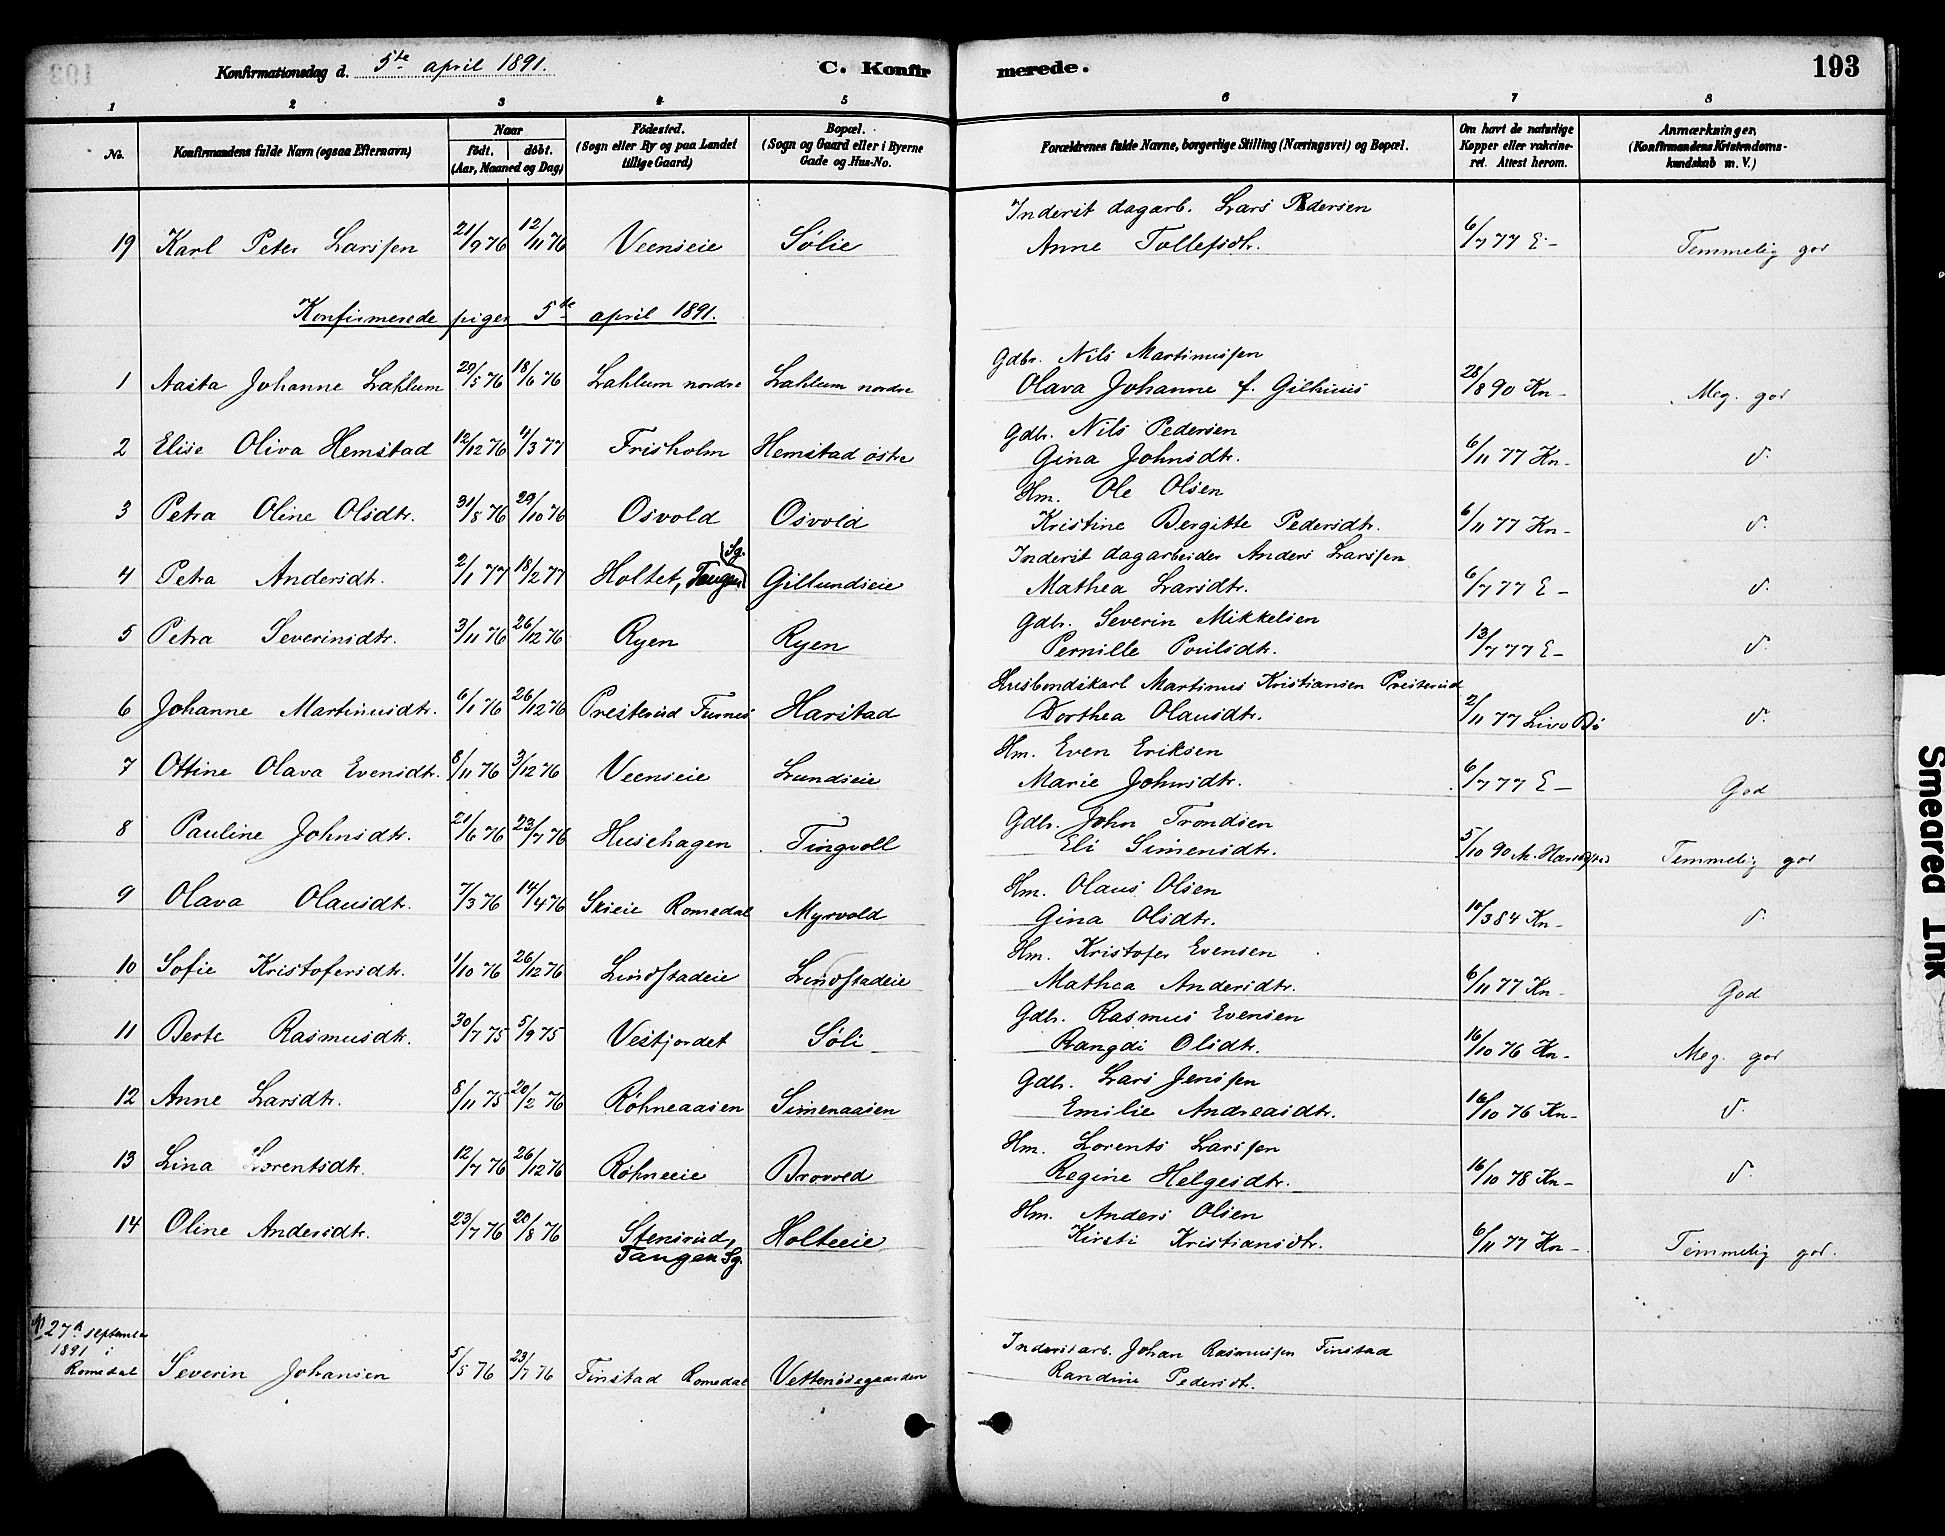 Konfirmationsdag d. 5te april 1891. C. Konfirmerede. 193
1 2 3 4 5 6 7 8
No. Konfirmandens fulde Navn (ogsaa Efternavn) Naar født. døbt. (Aar, Maaned og Dag) Fødested. (Sogn eller By og paa Landet tillige Gaard) Bopæl. (Sogn og Gaard eller i Byerne Gade og Hus-No. Forældrenes fulde Navne, borgerlige Stilling (Næringsvei) og Bopæl. Om havt de naturlige Kopper eller vakcineret. Attest herom. Anmærkninger, (Konfirmandens Kristendomskundskab m. V.)
Inderst dagarb. Lars Pedersen
19 Karl Peter Larssen 21/9 76 12/11 76 Veenseie Sølie Anne Tollefsdtr. 6/7 77 E- Temmelig god
Konfirmerede piger 5te april 1891.
Gdbr. Nils Martinussen
1 Aasta Johanne Lahlum 29/5 76 18/6 76 Lahlum nordre Lahlum nordre Olava Johanne f. Gilhuus 28/8 90 Kn- Meg. god
Gdbr. Nils Pedersen
2 Elise Oliva Hemstad 12/12 76 4/3 77 Frisholm Hemstad østre Gina Johnsdtr. 6/11 77 Kn-
Hm. Ole Olsen
3 Petra Oline Olsdtr. 31/8 76 29/10 76 Osvold Osvold Kristine Bergitte Pedersdtr. 6/11 77 Kn-
Inderst dagarbeider Anders Larssen
4 Petra Andersdtr. 2/1 77 18/2 77 Holtet, Tangen Sg. Gillundseie Mathea Larsdtr. 6/7 77 E-
Gdbr. Severin Mikkelsen
5 Petra Severinsdtr. 3/11 76 26/12 76 Ryen Ryen Pernille Poulsdtr. 13/7 77 E-
Husbondskarl Martinus Kristiansen Presterud
6 Johanne Martinusdtr. 6/1 76 26/12 76 Presterud Furnes Harstad Dorthea Olausdtr. 2/11 77
Hm. Even Eriksen
7 Ottine Olava Evensdtr. 8/11 76 3/12 76 Veenseie Lundseie Marie Johnsdtr. 6/7 77 E- God
Gdbr. John Trondsen
8 Pauline Johnsdtr. 21/6 76 23/7 76 Husehagen Tingvoll Eli Simensdtr. 5/10 90 Temmelig god
Hm. Olaus Olsen
9 Olava Olausdtr. 7/3 76 14/4 76 Skieie Romedal Myrvold Gina Olsdtr. 10/3 84 Kn-
Hm. Kristofer Evensen
10 Sofie Kristofersdtr. 1/10 76 26/12 76 Lindstadeie Lindstadeie Mathea Andersdtr. 6/11 77 Kn- God
Gdbr. Rasmus Evensen
11 Berte Rasmusdtr. 30/7 75 5/9 75 Vestjordet Søli Rangdi Olsdtr. 16/10 76 Kn- Meg. god
Gdbr. Lars Jenssen
12 Anne Larsdtr. 8/11 75 20/2 76 Røhneaasen Simenaasen Emilie Andreasdtr. 16/10 76 Kn-
Hm. Lorents Larssen
13 Lina Lorentsdtr. 12/7 76 26/12 76 Røhneeie Brovold Regine Helgesdtr. 16/10 78 Kn-
Hm. Anders Olsen
14 Oline Andersdtr. 23/7 76 20/8 76 Stensrud, Tangen Sg. Holteeie Kirsti Kristiansdtr. 6/11 77 Kn- Temmelig god.
27de september 1891 i Romedal Severin Johansen 5/5 76 23/7 76 Finstad Romedal Vettenødegaarden Inderst arb. Johan Rasmussen Finstad
Randine Pedersdtr.
Smeared Ink